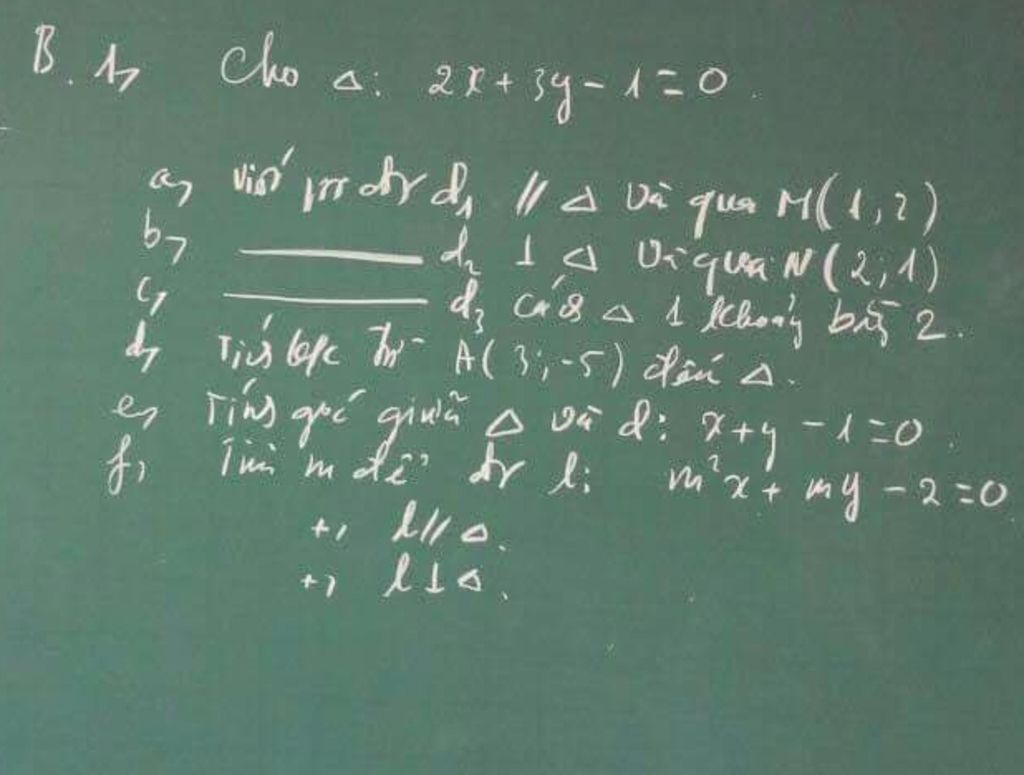 B. 1, Cho Δ: 2x + 3y - 1 = 0.
a, Viết pt đt d₁ // Δ và qua M(1, 2)
b, ——— d₂ ⊥ Δ và qua N(2; 1)
c, ——— d₃ cách Δ 1 khoảng bằng 2.
d, Tính k/c từ A(3; -5) đến Δ.
e, Tính góc giữa Δ và d: x + y - 1 = 0.
f, Tìm m để đt l: m²x + my - 2 = 0
+, l // Δ.
+, l ⊥ Δ.